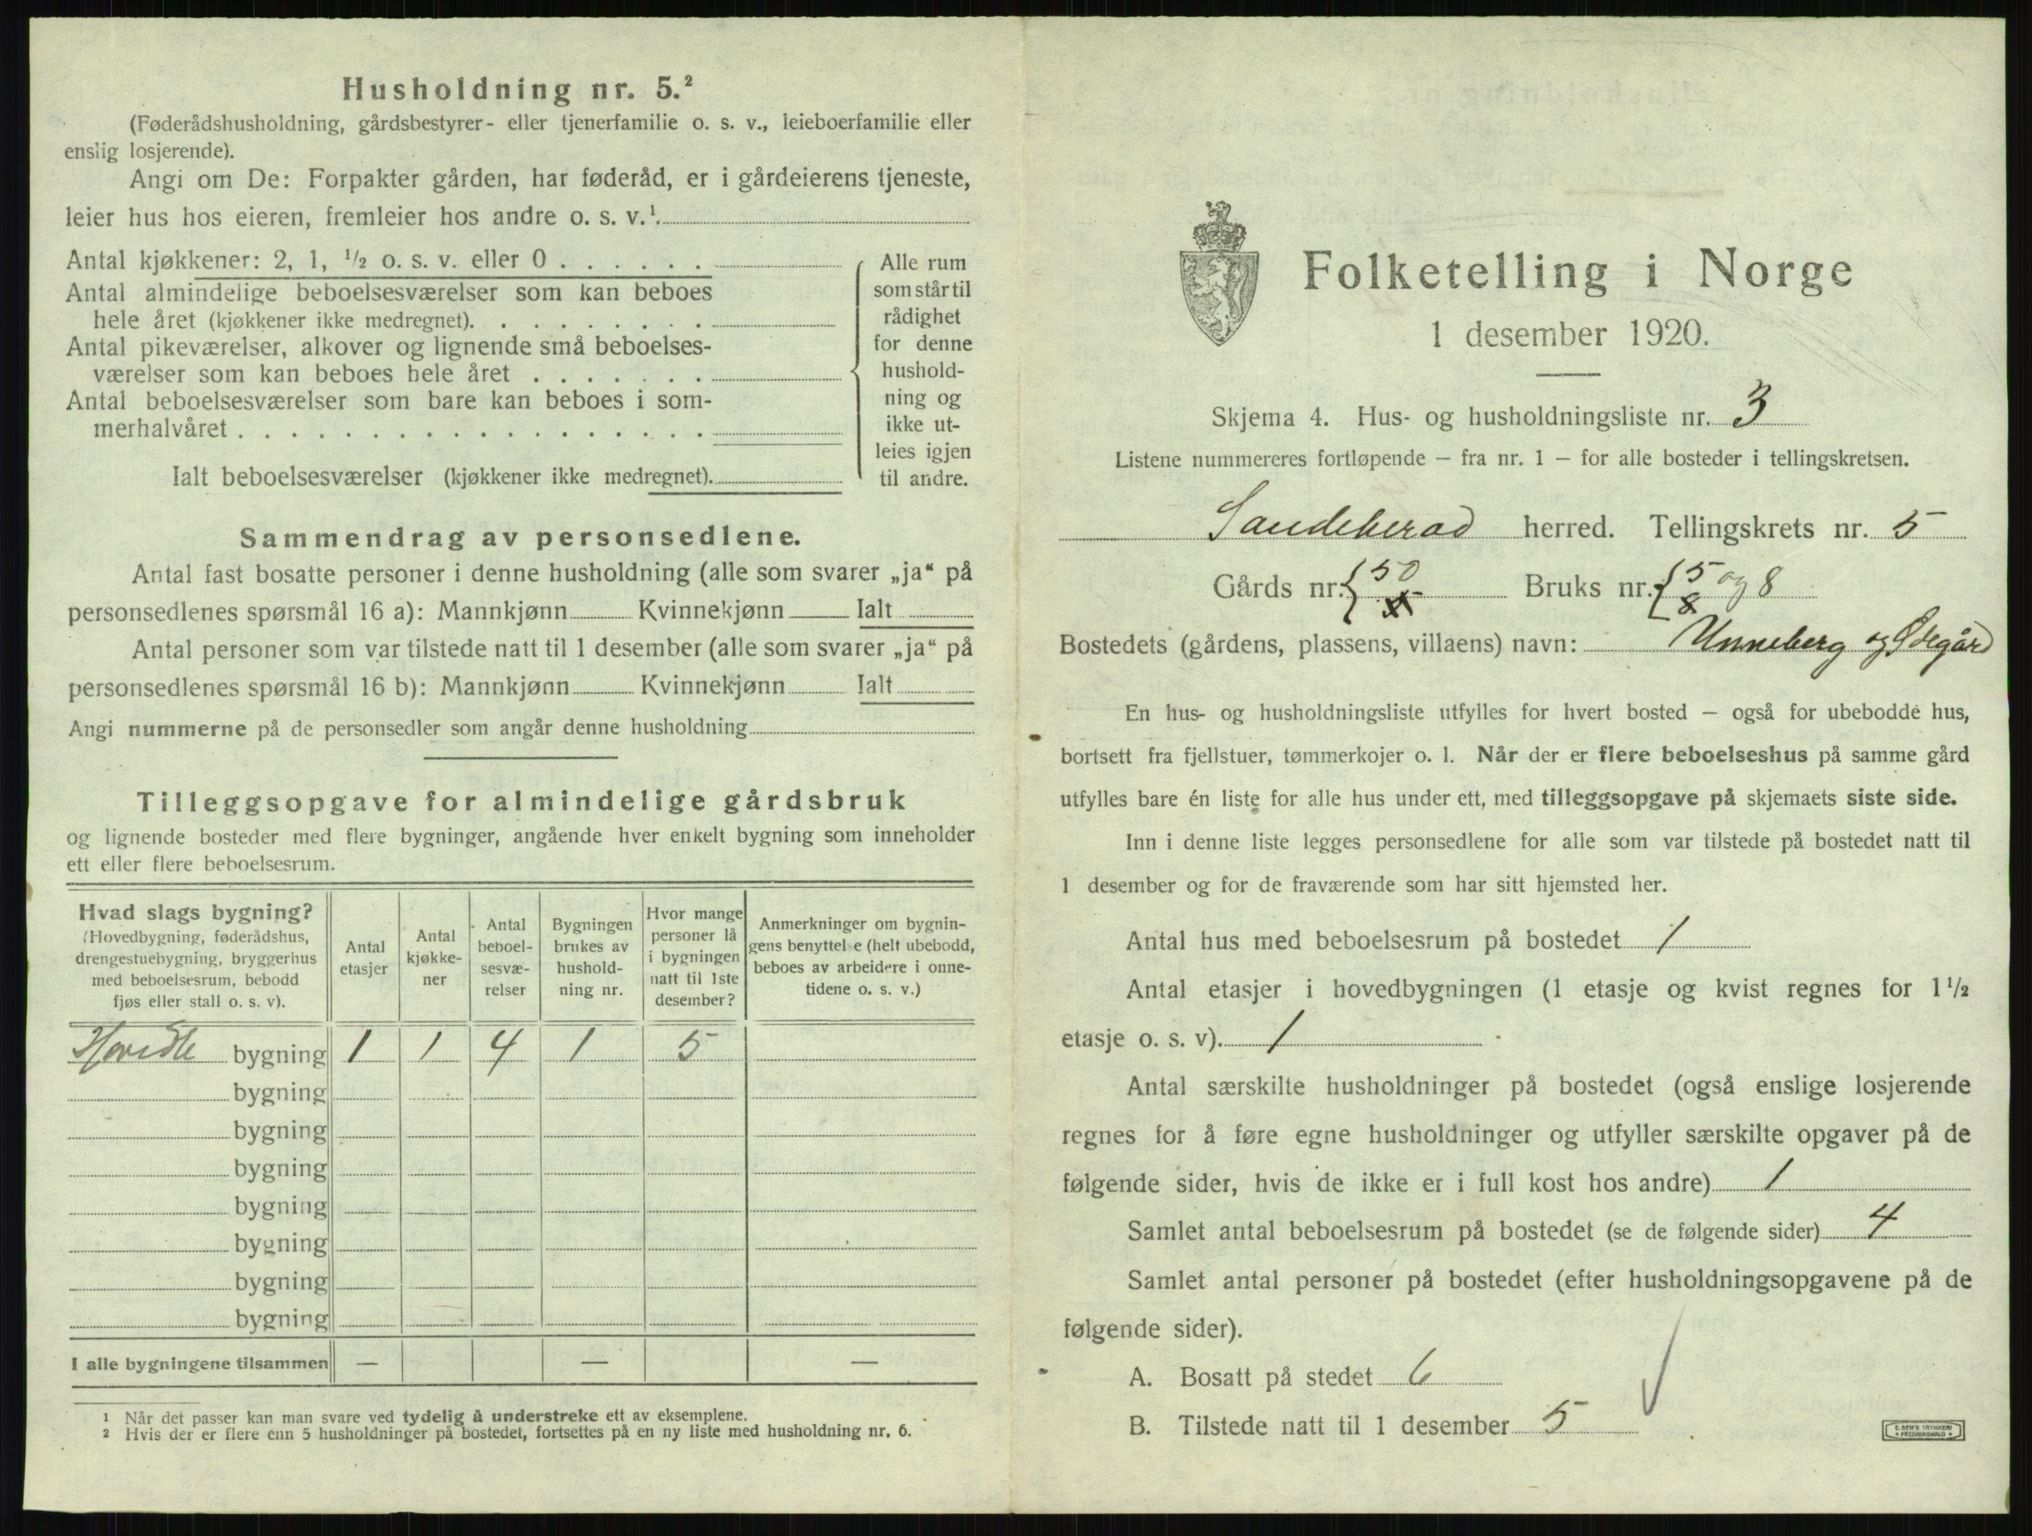 Husholdning nr. 5.²
(Føderådshusholdning, gårdsbestyrer- eller tjenerfamilie o. s. v., leieboerfamilie eller
enslig losjerende).
Angi om De: Forpakter gården, har føderåd, er i gårdeierens tjeneste,
leier hus hos eieren, fremleier hos andre o. s. v.¹
Antal kjøkkener: 2, 1, ½ o. s. v. eller 0
Antal almindelige beboelsesværelser som kan beboes
hele året (kjøkkener ikke medregnet).
Antal pikeværelser, alkover og lignende små beboelses-
værelser som kan beboes hele året
Antal beboelsesværelser som bare kan beboes i som-
merhalvåret
Ialt beboelsesværelser (kjøkkener ikke medregnet).
Alle rum
som står til
rådighet
for denne
hushold-
ning og
ikke ut-
leies igjen
til andre.
Sammendrag av personsedlene.
Antal fast bosatte personer i denne husholdning (alle som svarer „ja“ på
personsedlenes spørsmål 16 a): Mannkjønn Kvinnekjønn Ialt
Antal personer som var tilstede natt til 1 desember (alle som svarer „ja“ på
personsedlenes spørsmål 16 b): Mannkjønn Kvinnekjønn Ialt
Angi nummerne på de personsedler som angår denne husholdning
Tilleggsopgave for almindelige gårdsbruk
og lignende bosteder med flere bygninger, angående hver enkelt bygning som inneholder
ett eller flere beboelsesrum.
Hvad slags bygning?
(Hovedbygning, føderådshus,
drengestuebygning, bryggerhus
med beboelsesrum, bebodd
fjøs eller stall o. s. v).
Antal
etasjer
Antal
kjøkke-
ner
Antal
beboel-
sesvæ-
relser
Bygningen
brukes av
hushold-
ning nr.
Hvor mange
personer lå
i bygningen
natt til 1ste
desember?
Anmerkninger om bygnin-
gens benyttelse (helt ubebodd,
beboes av arbeidere i onne-
tidene o. s. v.)
bygning 1 1 4 1 5
bygning
bygning
bygning
bygning
bygning
bygning
bygning
I alle bygningene tilsammen — — —
¹ Når det passer kan man svare ved tydelig å understreke ett av eksemplene.
² Hvis der er flere enn 5 husholdninger på bostedet, fortsettes på en ny liste med husholdning nr. 6.
Folketelling i Norge
1 desember 1920.
Skjema 4. Hus- og husholdningsliste nr. 3
Listene nummereres fortløpende – fra nr. 1 – for alle bosteder i tellingskretsen.
Sandeherad herred. Tellingskrets nr. 5
Gårds nr. { 50 Bruks nr. { 5 og 8
8
Bostedets (gårdens, plassens, villaens) navn: Unneberg og Ødegård
En hus- og husholdningsliste utfylles for hvert bosted – også for ubebodde hus,
bortsett fra fjellstuer, tømmerkojer o. l. Når der er flere beboelseshus på samme gård
utfylles bare én liste for alle hus under ett, med tilleggsopgave på skjemaets siste side.
Inn i denne liste legges personsedlene for alle som var tilstede på bostedet natt til
1 desember og for de fraværende som har sitt hjemsted her.
Antal hus med beboelsesrum på bostedet 1
Antal etasjer i hovedbygningen (1 etasje og kvist regnes for 1½
etasje o. s. v). 1
Antal særskilte husholdninger på bostedet (også enslige losjerende
regnes for å føre egne husholdninger og utfyller særskilte opgaver på de
følgende sider, hvis de ikke er i full kost hos andre) 1
Samlet antal beboelsesrum på bostedet (se de følgende sider) 4
Samlet antal personer på bostedet (efter husholdningsopgavene på de
følgende sider).
A. Bosatt på stedet 6
B. Tilstede natt til 1 desember 5